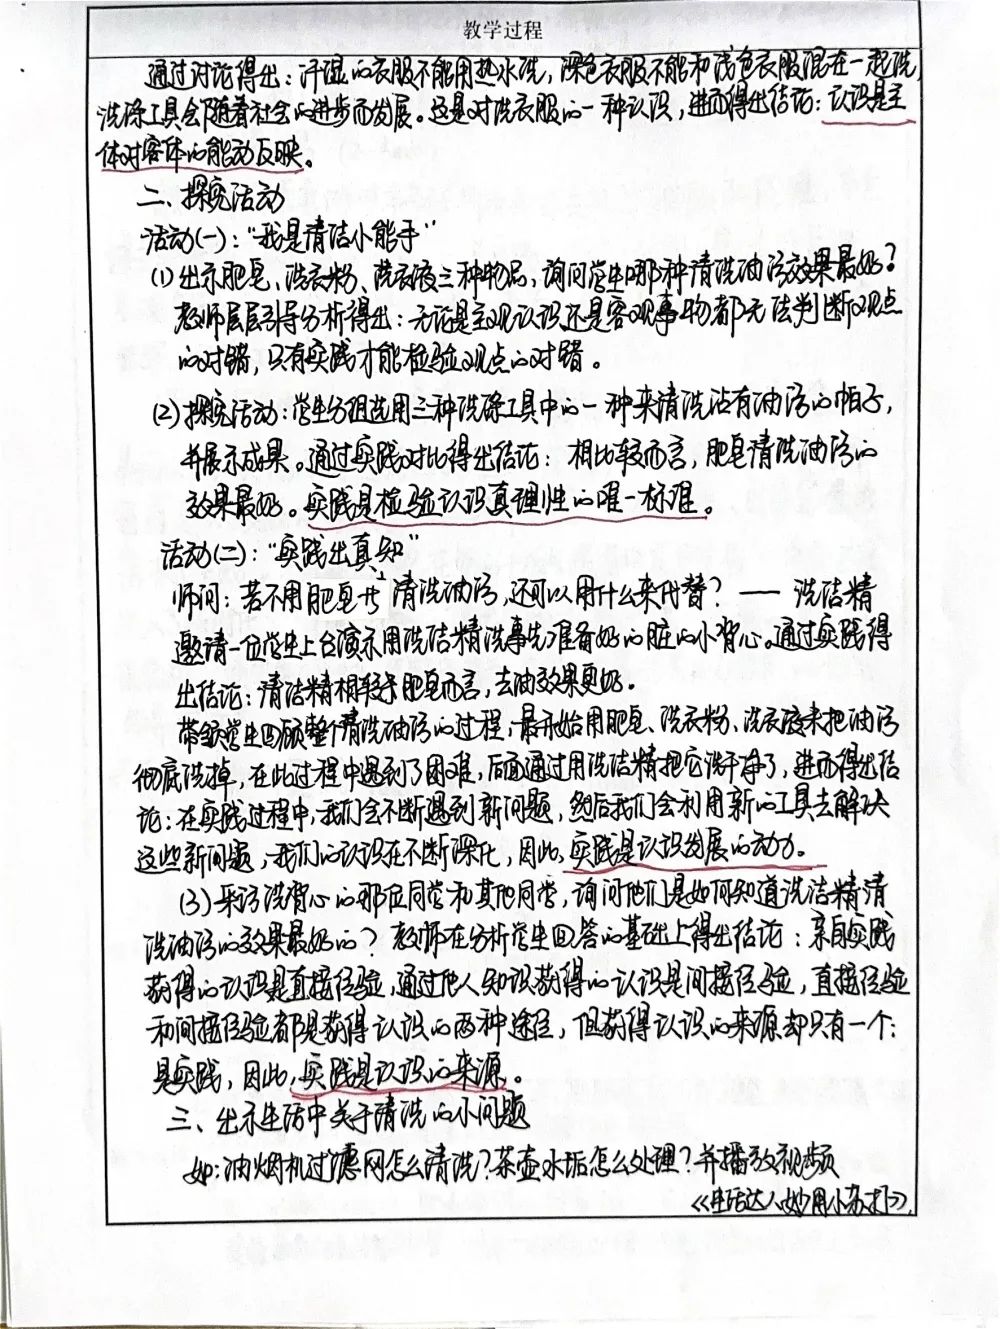 教学过程
通过讨论得出：汗湿的衣服不能用热水洗，深色衣服不能和浅色衣服混在一起洗，
洗涤工具会随着社会的进步而发展。这是对洗衣服的一种认识，进而得出结论：认识是主
体对客体的能动反映。
二、探究活动
活动(一)："我是清洁小能手"
(1) 出示肥皂、洗衣粉、洗衣液三种物品，询问学生哪种清洗油污效果最好？
教师层层引导分析得出：无论是主观认识还是客观事物都无法判断观点
的对错，只有实践才能检验观点的对错。
(2) 探究活动：学生分组选用三种洗涤工具中的一种来清洗沾有油污的帕子，
并展示成果。通过实践对比得出结论：相比较而言，肥皂清洗油污的
效果最好。实践是检验认识真理性的唯一标准。
活动(二)："实践出真知"
师问：若不用肥皂去清洗油污，还可以用什么来代替？——洗洁精
邀请一位学生上台演示用洗洁精洗事先准备好的脏的小背心。通过实践得
出结论：清洁精相较于肥皂而言，去油效果更好。
带领学生回顾整个清洗油污的过程，最开始用肥皂、洗衣粉、洗衣液来把油污
彻底洗掉，在此过程中遇到了困难，后面通过用洗洁精把它洗干净了，进而得出结
论：在实践过程中，我们会不断遇到新问题，然后我们会利用新的工具去解决
这些新问题，我们的认识在不断深化，因此，实践是认识发展的动力。
(3) 采访洗背心的那位同学和其他同学，询问他们是如何知道洗洁精清
洗油污的效果最好的？教师在分析学生回答的基础上得出结论：亲自实践
获得的认识是直接经验，通过他人知识获得的认识是间接经验，直接经验
和间接经验都是获得认识的两种途径，但获得认识的来源却只有一个：
是实践，因此，实践是认识的来源。
三、出示生活中关于清洗的小问题
如：油烟机过滤网怎么清洗？茶壶水垢怎么处理？并播放视频
《生活达人妙用小苏打》